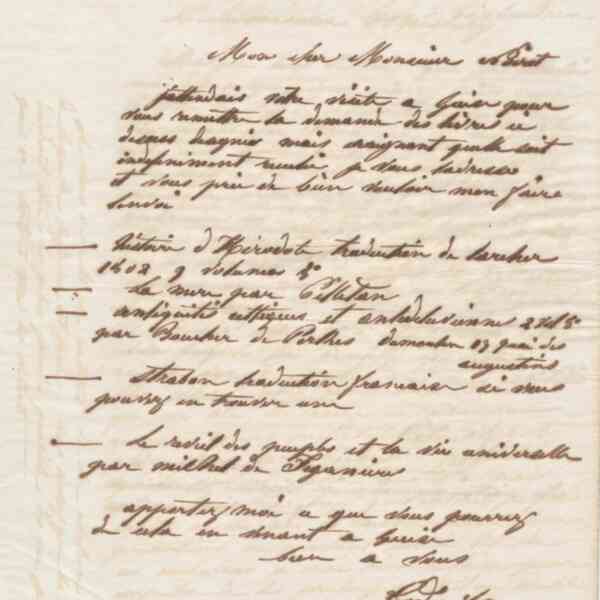 Mon cher Monsieur
jattendais votre visite a Guise pour
vous remettre la demande des livres ci
dessous designes mais craignant quelle soit
indefiniment reculee je vous ladresse
et vous prie de bien vouloir men faire
lenvoi
histoire d Herodote traduction de larcher
1802 9 volumes 8°
La mere par Pelletan
antiquités celtiques et antediluviennes 2 vol 8°
par Boucher de Perthes dumoulin quai des
augustins
strabon traduction francaise si vous
pouvez en trouver une
Le reveil des peuples et la vie universelle
par michel de Figanieres
apportez moi ce que vous pourrez
de cela en venant a Guise
bien a vous